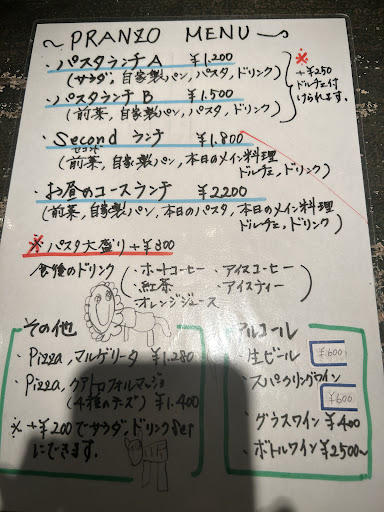 ~ PRANZO MENU ~
・パスタランチ A ¥1,200
(サラダ, 自家製パン, パスタ, ドリンク)
・パスタランチ B ¥1,500
(前菜, 自家製パン, パスタ, ドリンク)
※
+¥250
ドルチェ付
けられます。
・Second ランチ ¥1,800
セコンド
(前菜, 自家製パン, 本日のメイン料理
ドルチェ, ドリンク)
・お昼のコースランチ ¥2200
(前菜, 自家製パン, 本日のパスタ, 本日のメイン料理
ドルチェ, ドリンク)
※ パスタ大盛り +¥300
食後のドリンク
・ホットコーヒー ・アイスコーヒー
・紅茶 ・アイスティー
・オレンジジュース
その他
・Pizza マルゲリータ ¥1,280
・Pizza クアトロフォルマッジョ
(4種のチーズ) ¥1,400
※ +¥200でサラダ,ドリンクset
にできます。
アルコール
・生ビール ¥600
・スパークリングワイン
¥600
・グラスワイン ¥400
・ボトルワイン ¥2500~